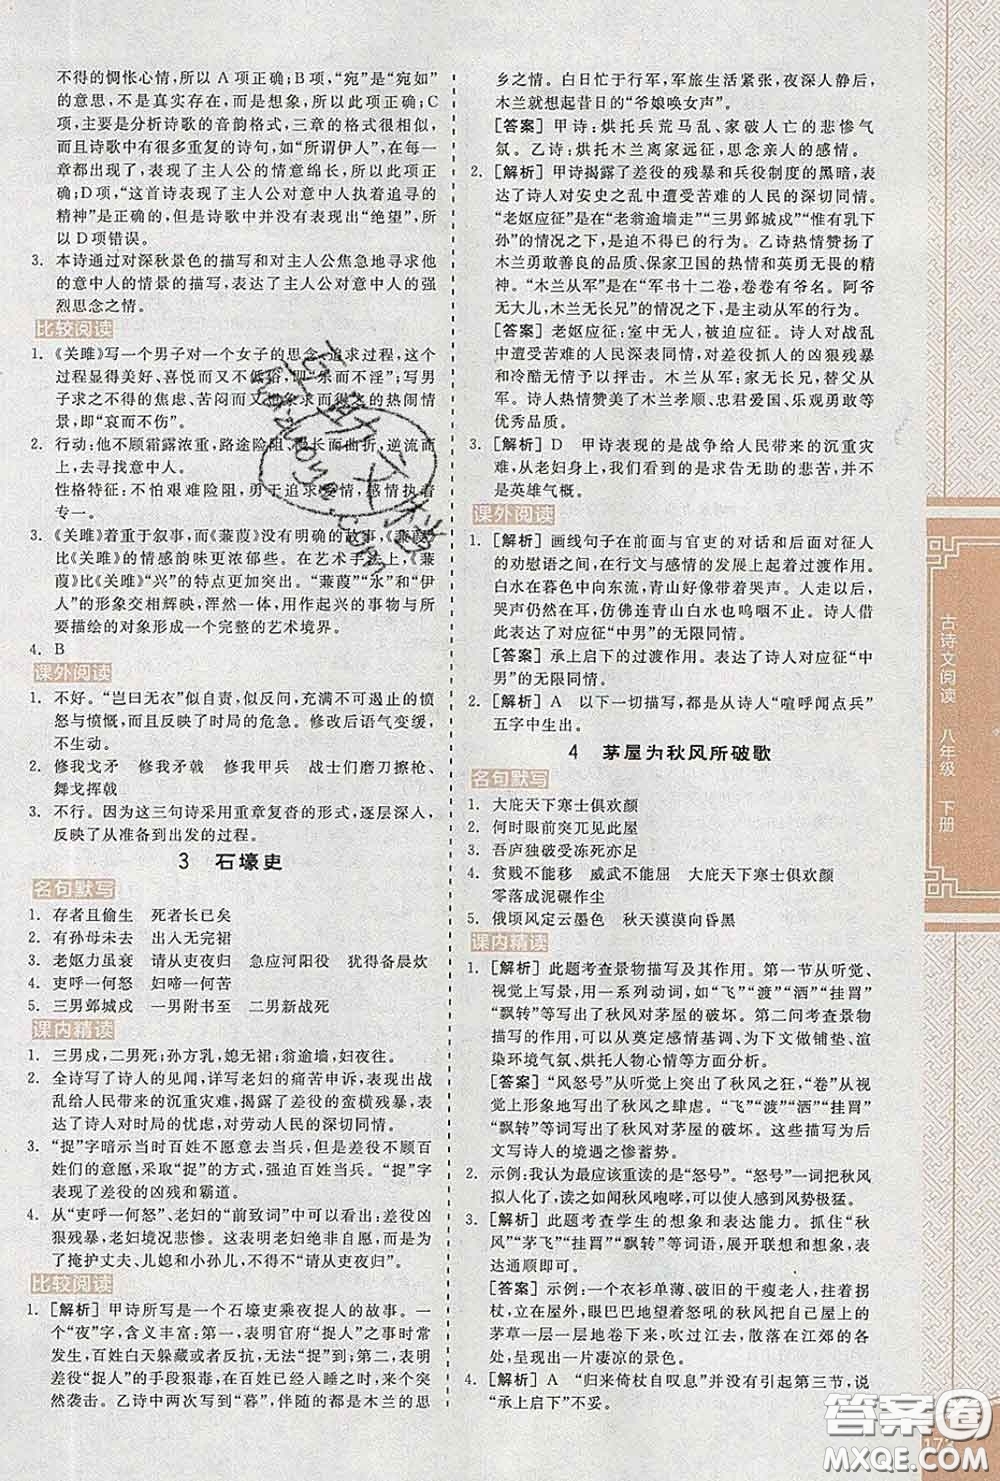 不得的惆怅心情，所以 A 项正确；B 项，“宛”是“宛如”
的意思，不是真实存在，而是想象，所以此项正确；C
项，主要是分析诗歌的音韵格式，三章的格式很相似，
诗歌中有很多重复的诗句，如“所谓伊人”，在每一
章都出现了，表现了主人公的情意绵长，所以此项正
确；D 项，“这首诗表现了主人公对意中人执着追寻的
精神”是正确的，但诗歌中并没有表现出“绝望”，所
以 D 项错误。
3. 本诗通过对深秋景色的描写和对主人公焦急地寻求他
的意中人的情景的描写，表达了主人公对意中人的强
烈思念之情。
比较阅读
1. 《关雎》写一个男子对一个女子的思念、追求过程，这个
过程显得美好、喜悦而又不低俗，即“乐而不淫”；写男
子求之不得的焦虑、苦闷而又大胆、热烈、闹而有度的
情，即“哀而不伤”。
2. 行动：他不顾霜露浓重，路途险阻、漫长曲折，逆流而上，
去寻找意中人。
性格特征：不怕艰难险阻，勇于追求爱情，感情执着
专一。
3. 《关雎》着重于叙事，而《蒹葭》没有明确的故事，《蒹葭》
比《关雎》的情感韵味更浓郁些。在艺术手法上，《蒹
葭》比《关雎》“兴”的特点更加突出。“蒹葭”“水”和“伊
人”的形象交相辉映，浑然一体，用作起兴的事物与所
要描绘的对象形成一个完整的艺术境界。
4. B
课外阅读
1. 不好。“岂曰无衣”似自责，似反问，充满不可遏止的愤
怒与愤慨，而且反映了时局的危急。修改后语气变缓，
不生动。
2. 修我戈矛　修我矛戟　修我甲兵　战士们磨刀擦枪、
舞戈挥戟
3. 不行。因为这三句诗采用重章复沓的形式，逐层深入，
反映了从准备到出发的过程。
3　石壕吏
名句默写
1. 存者且偷生　死者长已矣
2. 有孙母未去　出入无完裙
3. 老妪力虽衰　请从吏夜归　急应河阳役　犹得备晨炊
4. 吏呼一何怒　妇啼一何苦
5. 三男邺城戍　一男附书至　二男新战死
课内精读
1. 三男戍，二男死；孙方乳，媳无裙；翁逾墙，妇夜往。
2. 全诗写了诗人的见闻，详写老妇的痛苦申诉，表达了战
乱给人民带来的沉重灾难，揭露了差役的蛮横残暴，表
达了诗人对时局的忧虑，对劳动人民的深切同情。
3. “捉”字暗示当时百姓不愿意去当兵，但是差役不顾百
姓们的意愿，采取“捉”的方式，强迫百姓当兵。“捉”字
表现了差役的凶残和霸道。
4. 从“吏呼一何怒”、老妇的“前致词”中可以看出，差役凶
狠残暴，老妇境况悲惨。这表明老妇并非自愿，而是为
了掩护丈夫、儿媳和小孙儿，不得不“请从吏夜归”。
比较阅读
1. [解析] 甲诗所写是一个石壕吏乘夜捉人的故事。一
个“夜”字，含义丰富：第一，表明官府“捉人”的事时常
发生，百姓白天躲藏或者反抗，无法“捉”到；第二，表明
差役“捉人”的手段狠毒，在百姓已经入睡之时，来一个
突然袭击。乙诗中两次写到“暮”，伴随的是木兰的思
乡之情。白日忙于行军，军旅生活紧张，夜深人静后，
木兰就想起昔日的“爷娘唤女声”。
[答案] 甲诗：烘托兵荒马乱、家破人亡的悲惨气
氛。乙诗：烘托木兰离家远征，思念亲人的感情。
2. [解析] 甲诗揭露了差役的残暴和兵役制度的黑暗，表
达了诗人对安史之乱中遭受苦难的人民的深切同情。
“老妪应征”是在“老翁逾墙走”“三男邺城戍”“惟有乳下
孙”的情况之下，是迫不得已的行为。乙诗热情赞扬了
木兰勇敢善良的品质、保家卫国的热情和英勇无畏的
精神。“木兰从军”是在“军书十二卷，卷卷有爷名。阿爷
无大儿，木兰无长兄”的情况之下，主动从军的行为。
[答案] 老妪应征：室中无人，被迫应征。诗人对战乱
中遭受苦难的人民深表同情，对差役抓人的凶狠残暴
和冷酷无情给予以抨击。木兰从军：家无长兄，替父从
军。诗人热情赞美了木兰孝顺、忠君爱国、乐观勇敢等
优秀品质。
3. [解析] D　甲诗表现的是战争给人民带来的沉重灾
难，从老妇身上，我们看到的是求告无助的悲苦，并不
是英雄气概。
课外阅读
1. [解析] 画线句子在前面与官吏的对话和后面对征人
的劝慰语之间，在行文与感情的发展上起着过渡作用。
白水在暮色中向东流，青山好像带着哭声。人走以后，
哭声仍然在耳，仿佛连青山白水也呜咽不止。诗人从
中表达了对应征“中男”的无限同情。
[答案] 承上启下的过渡作用。表达了诗人对应征“中
男”的无限同情。
2. [解析] A　以下一切描写，都是从诗人“喧呼闻点兵”
五字中生出。
4　茅屋为秋风所破歌
名句默写
1. 大庇天下寒士俱欢颜
2. 何时眼前突兀见此屋
3. 吾庐独破受冻死亦足
4. 贫贱不能移　威武不能屈　大庇天下寒士俱欢颜
零落成泥碾作尘
5. 俄顷风定云墨色　秋天漠漠向昏黑
课内精读
1. [解析] 此题考查景物描写及其作用。第一节从听觉、
视觉上写景，用一系列动词，如“飞”“渡”“洒”“挂罥”
“飘转”等写出了秋风对茅屋的破坏。第二问考查景物
描写的作用，可以从奠定感情基调、为下文做铺垫、渲
染环境气氛、烘托人物心情等方面分析。
[答案] “风怒号”从听觉上突出了秋风之狂，“卷”从视
觉上形象地写出了秋风之肆虐。“飞”“渡”“洒”“飘
转”等词写出了秋风对茅屋的破坏。这些描写为后
文写诗人的境遇之惨蓄势。
2. 示例：我认为最应该重读的是“怒号”。“怒号”一词把秋风
拟人化了，读之如闻秋风咆哮，可以让人感到风势极猛。
3. [解析] 此题考查学生的想象和表达能力。抓住“秋
风”“茅飞”“挂罥”“飘转”，展开联想和想象，语言表达
通顺即可。
[答案] 示例：一个衣衫单薄、破旧的干瘦老人，拄着拐
杖，立在屋外，眼巴巴地望着怒吼的秋风把自己屋上的
茅草一层一层地卷下来，吹过江去，散落在江郊的各
处，一片凄凉的景色。
4. [解析] A　“归来倚杖自叹息”并没有引起第三节，说
“承上启下”不妥。
古诗文阅读　八年级　下册
答案圈
MXQE.COM